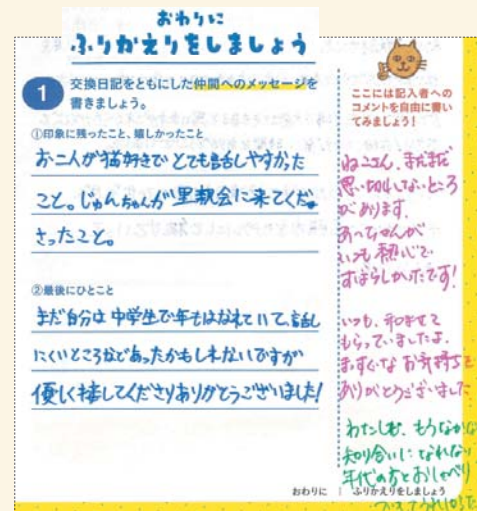 おわりに
ふりかえりをしましょう
1
交換日記をともにした仲間へのメッセージを
書きましょう。
①印象に残ったこと、嬉しかったこと
お二人が猫好きでとても話しやすかった
こと。じゅんちゃんが里親会に来てくだ
さったこと。
②最後にひとこと
まだ自分は中学生で年もはなれていて、話し
にくいところなどあったかもしれないですが
優しく接してくださりありがとうございました!
ここには記入者への
コメントを自由に書い
てみましょう!
ねこさん、まだまだ
思い切れてないところ
があります。
あいちゃんが
いつも熱心で
すばらしかったです!
いつも、和ませて
もらっていましたよ。
まっすぐなお気持ちを
ありがとうございました
わたしも、もうなかなか
知り合いになれない
年代の方とおしゃべり
できてうれしかった
おわりに | ふりかえりをしましょう